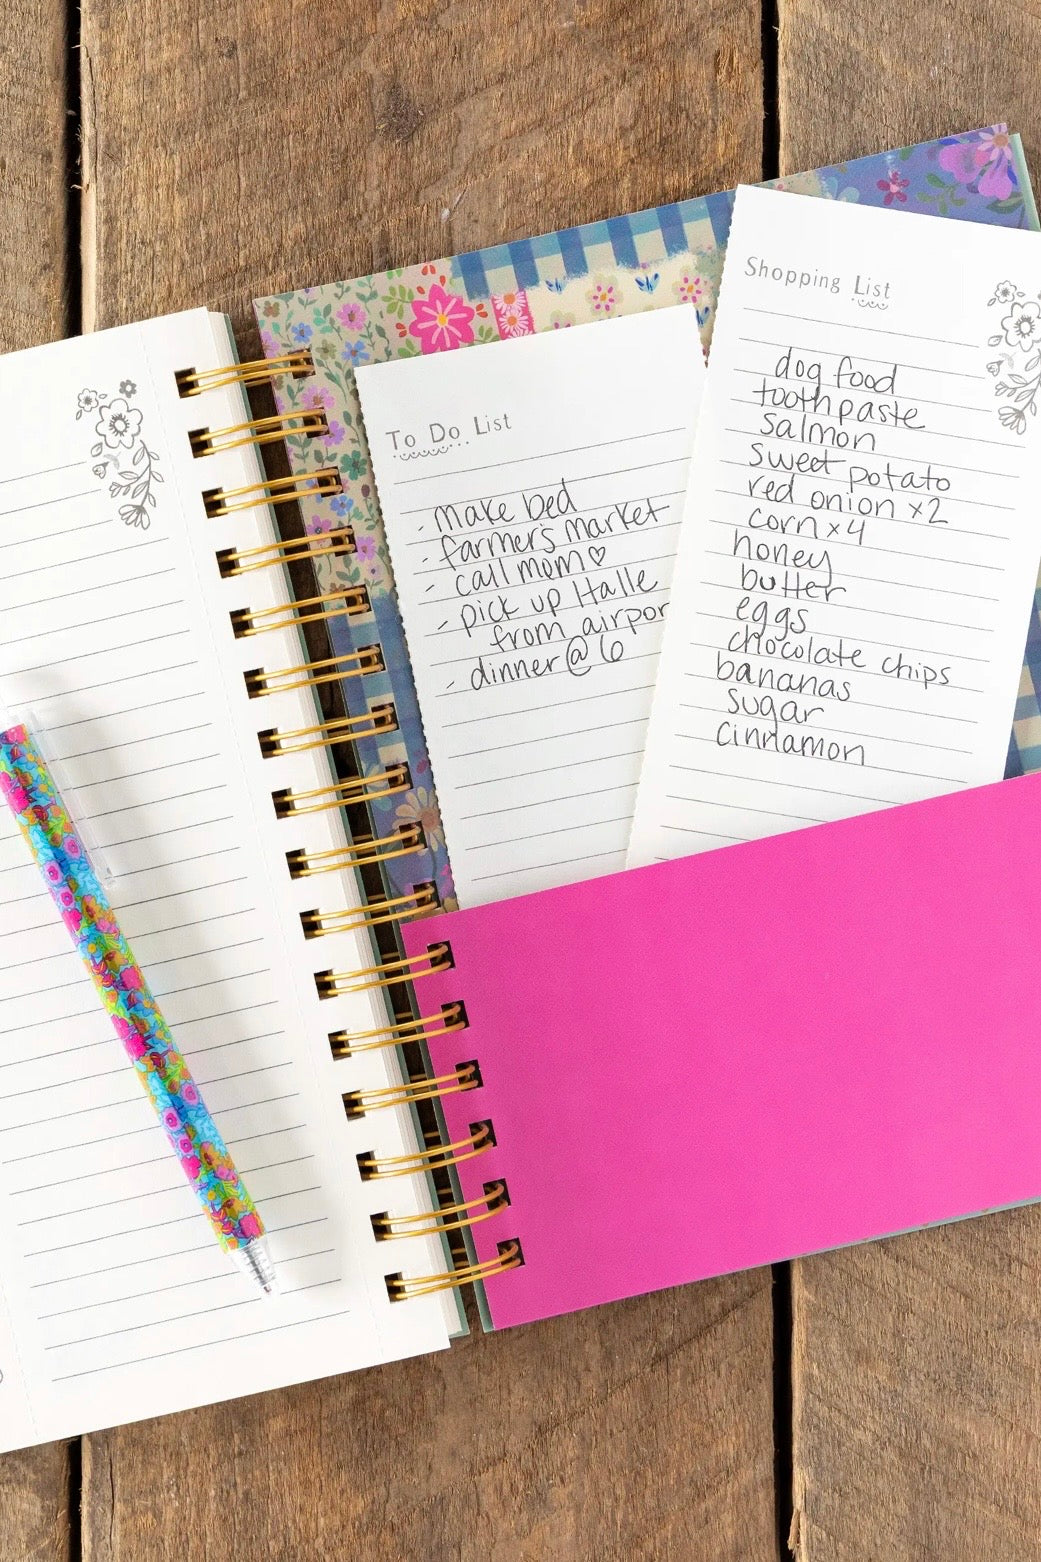 To Do List
- make bed
- farmer's market
- call mom♡
- pick up Halle
from airpor
- dinner @ 6
Shopping List
dog food
toothpaste
salmon
sweet potato
red onion x2
corn x4
honey
butter
eggs
chocolate chips
bananas
sugar
cinnamon